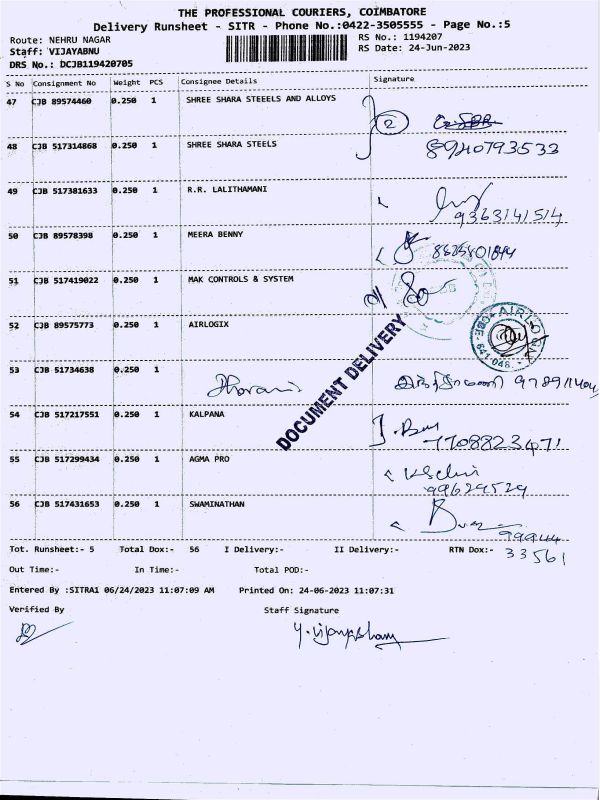 THE PROFESSIONAL COURIERS, COIMBATORE
Delivery Runsheet - SITR - Phone No.:0422-3505555 - Page No.:5
Route: NEHRU NAGAR RS No.: 1194207
Staff: VIJAYABNU RS Date: 24-Jun-2023
DRS No.: DCJB119420705
S No Consignment No Weight PCS Consignee Details Signature
47 CJB 89574460 0.250 1 SHREE SHARA STEEELS AND ALLOYS
2
48 CJB 517314868 0.250 1 SHREE SHARA STEELS 8940793533
49 CJB 517381633 0.250 1 R.R. LALITHAMANI
9363141514
50 CJB 89578398 0.250 1 MEERA BENNY
51 CJB 517419022 0.250 1 MAK CONTROLS & SYSTEM
52 CJB 89575773 0.250 1 AIRLOGIX
DOCUMENT DELIVERY
53 CJB 51734638 0.250 1
54 CJB 517217551 0.250 1 KALPANA
7708823471
55 CJB 517299434 0.250 1 AGMA PRO
99629529
56 CJB 517431653 0.250 1 SWAMINATHAN
99944
33561
Tot. Runsheet:- 5 Total Dox:- 56 I Delivery:- II Delivery:- RTN Dox:-
Out Time:- In Time:- Total POD:-
Entered By :SITRA1 06/24/2023 11:07:09 AM Printed On: 24-06-2023 11:07:31
Verified By Staff Signature